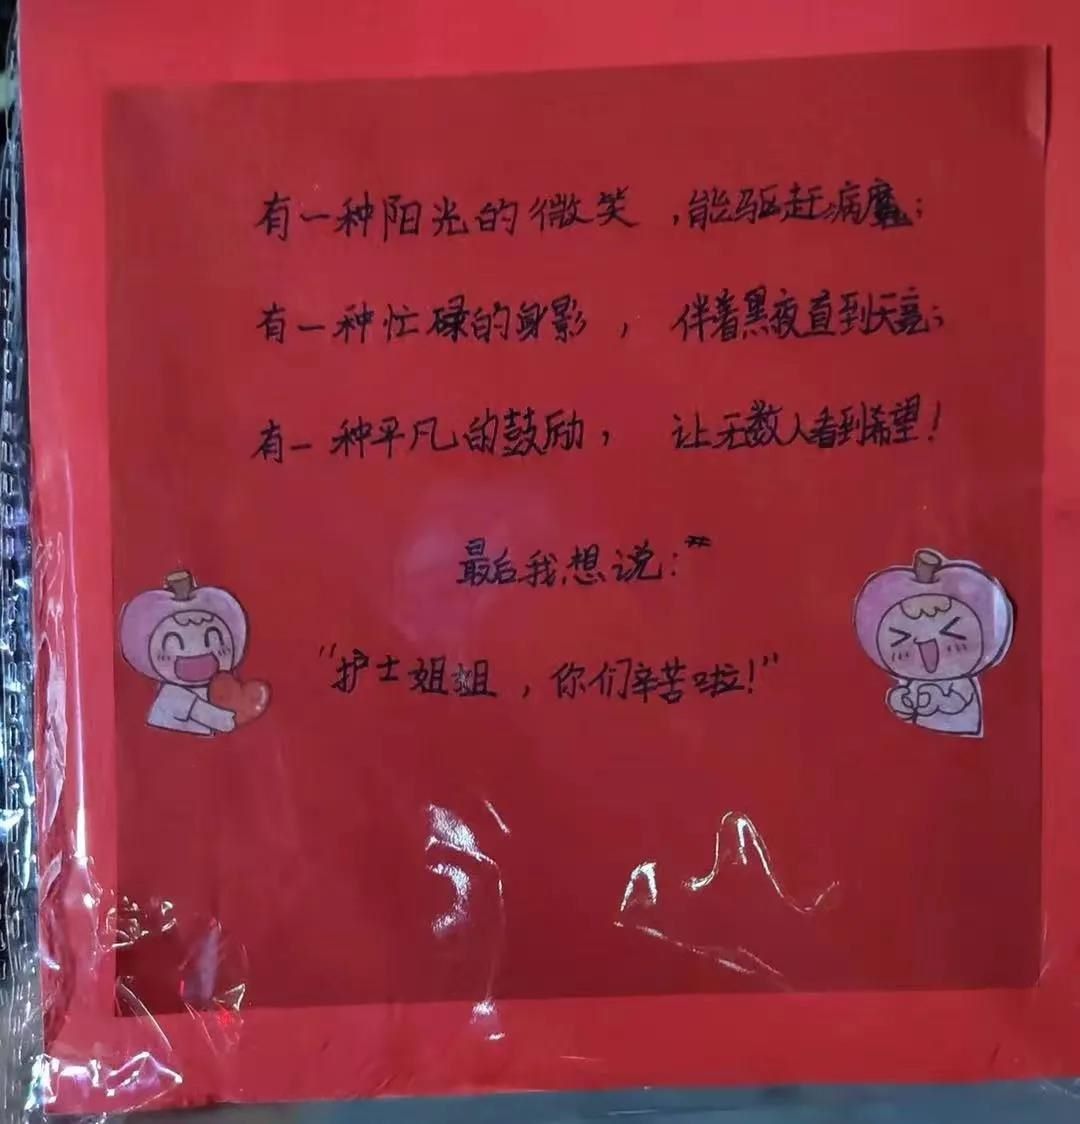 有一种阳光的微笑，能驱赶病魔；
有一种忙碌的身影，伴着黑夜直到天亮；
有一种平凡的鼓励，让无数人看到希望！
最后我想说：
“护士姐姐，你们辛苦啦！”